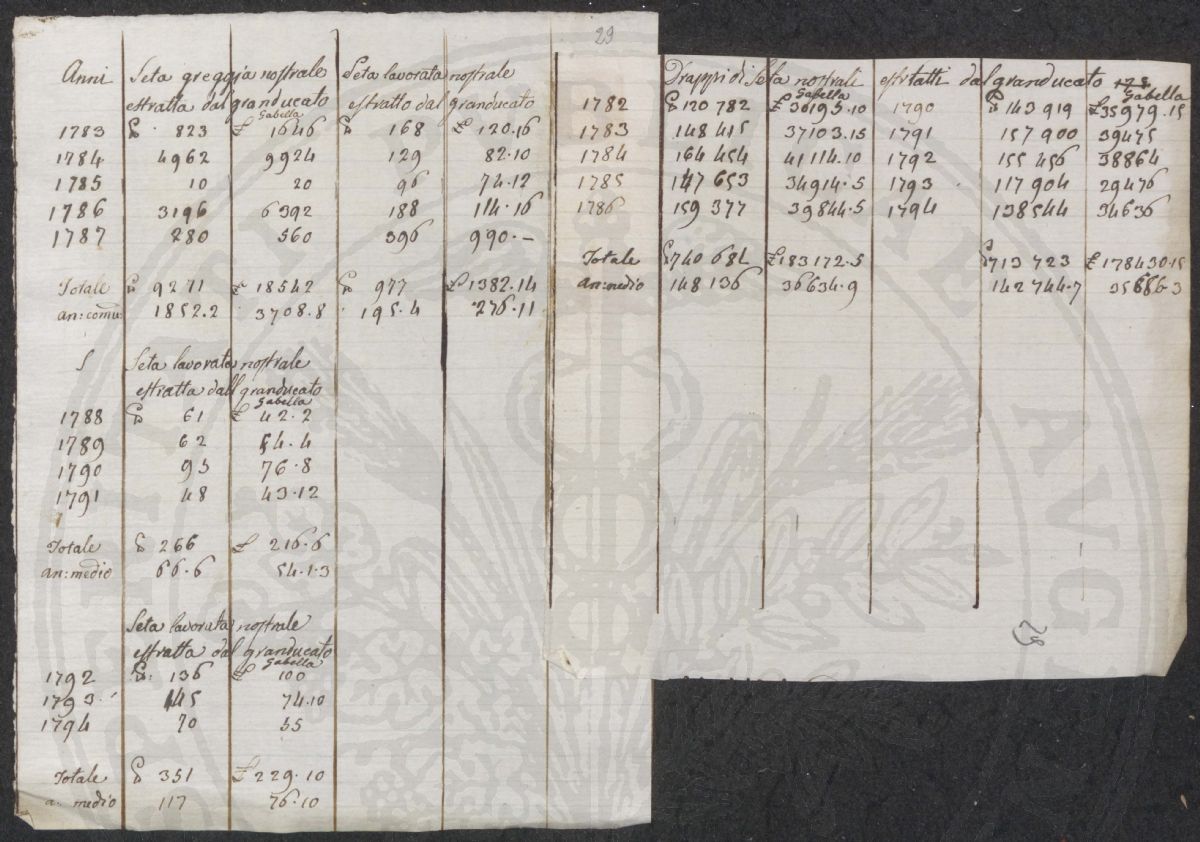 29
Anni Seta greggia nostrale Seta lavorata nostrale
estratta dal granducato estratto dal granducato
Gabella
1783 ₶ 823 £ 1646 ₶ 168 £ 120.16
1784 4962 9924 129 82.10
1785 10 20 96 74.12
1786 3196 6392 188 114.16
1787 280 560 396 990.—
Totale ₶ 9271 £ 18542 ₶ 977 £ 1382.14
an: comu: 1852.2 3708.8 195.4 276.11
Seta lavorata nostrale
estratta dall granducato
Gabella
1788 ₶ 61 £ 42.2
1789 62 54.4
1790 95 76.8
1791 48 43.12
Totale ₶ 266 £ 216.6
an: medio 66.6 54.1.3
Seta lavorata nostrale
estratta dal granducato
Gabella
1792 ₶ 136 £ 100
1793 145 74.10
1794 70 55
Totale ₶ 351 £ 229.10
a: medio 117 76.10
Drappi di Seta nostrali estratti dal granducato
Gabella Gabella
1782 ₶ 120 782 £ 30195.10 1790 ₶ 143 919 £ 35979.15
1783 148 415 37103.15 1791 157 900 39475
1784 164 454 41114.10 1792 155 456 38864
1785 147 653 34914.5 1793 117 904 29476
1786 159 377 39844.5 1794 138544 34636
Totale ₶ 740 684 £ 183172.5 ₶ 713 723 £ 178430.15
an: medio 148 136 36634.9 142 744.7 35686.3
29